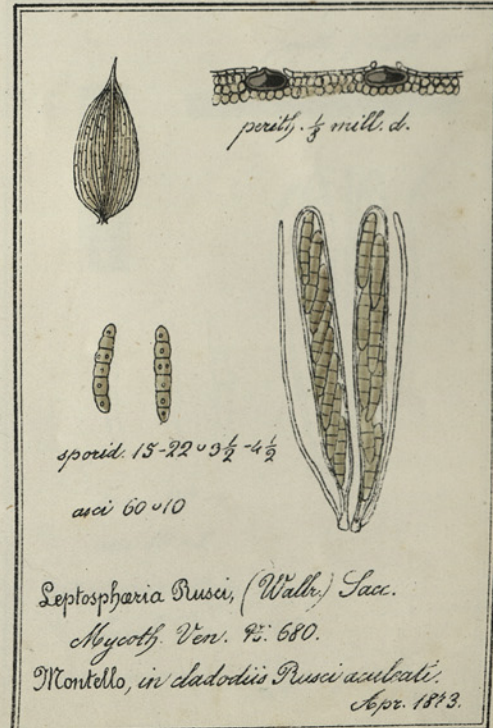 perith. ⅓ mill. d.
sporid. 15-22 ᴗ 3½-4½
asci 60 ᴗ 10
Leptosphæria Rusci, (Wallr.) Sacc.
Mycoth. Ven. N: 680.
Montello, in cladodiis Rusci aculeati.
Apr. 1873.